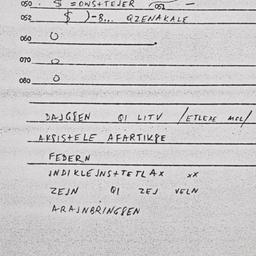 050 . $ = ONS+TEJER 051 -
052 $ )-8... QZENAKALE
060 O
070 O
080 O
DAJGSEN QI LITV /ETLEXE MOL/
AKSISTELE AFARTIKSE
FEDERN
INDIKLEJNS+TETLAX xx
ZEJN QI ZEJ VELN
ARAJNBRINGSEN